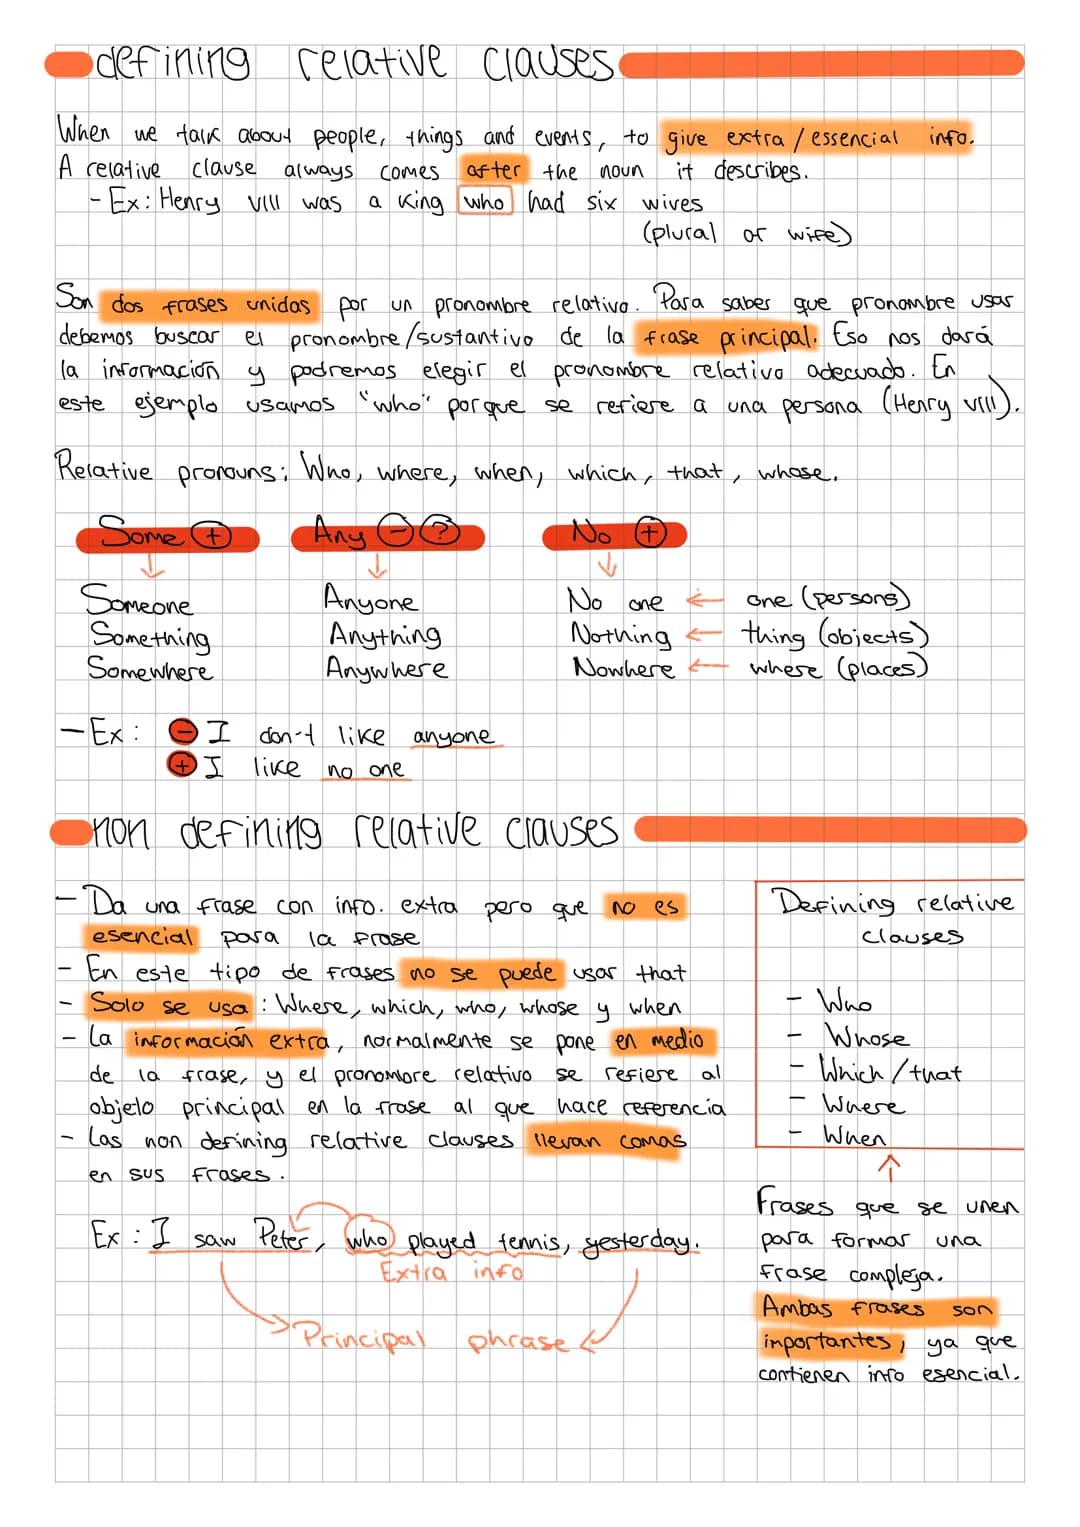 defining relative clauses
When we talk about people, things and events, to give extra / essencial info.
A relative clause always comes after the noun it describes.
- Ex: Henry VIII was a King who had six wives
(plural of wife)
Son dos frases unidas por un pronombre relativo. Para saber que pronombre usar
debemos buscar el pronombre/sustantivo de la frase principal. Eso nos dará
la información y podremos elegir el pronombre relativo adecuado. En
este ejemplo usamos "who" porque se refiere a una persona (Henry VIII).
Relative pronouns: Who, where, when, which, that, whose.
Some + Any - ? No +
Someone Anyone No one ← one (persons)
Something Anything Nothing ← thing (objects)
Somewhere Anywhere Nowhere ← where (places)
- Ex: - I don't like anyone
+ I like no one
non defining relative clauses
- Da una frase con info. extra pero que no es
esencial para la frase
- En este tipo de frases no se puede usar that
- Solo se usa: Where, which, who, whose y when
- La información extra, normalmente se pone en medio
de la frase, y el pronombre relativo se refiere al
objeto principal en la frase al que hace referencia
- Las non defining relative clauses llevan comas
en sus frases.
Ex: I saw Peter, who played tennis, yesterday.
Extra info
Principal phrase
Defining relative
clauses
- Who
- Whose
- Which/that
- Where
- When
Frases que se unen
para formar una
frase compleja.
Ambas frases son
importantes, ya que
contienen info esencial.